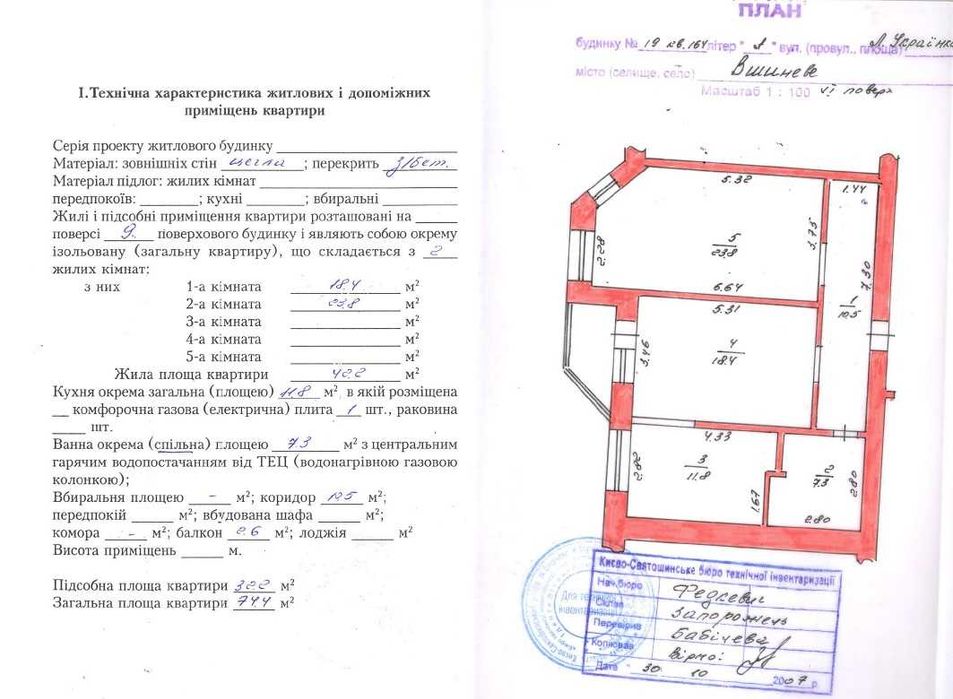 І.Технічна характеристика житлових і допоміжних
приміщень квартири
Серія проекту житлового будинку
Матеріал: зовнішніх стін цегла; перекрить з/бет.
Матеріал підлог: жилих кімнат
передпокоїв: ; кухні ; вбиральні
Жилі і підсобні приміщення квартири розташовані на
поверсі 9 поверхового будинку і являють собою окрему
ізольовану (загальну квартиру), що складається з 2
жилих кімнат:
з них 1-а кімната 18.4 м²
2-а кімната 23.8 м²
3-а кімната м²
4-а кімната м²
5-а кімната м²
Жила площа квартири 42.2 м²
Кухня окрема загальна (площею) 11.8 м², в якій розміщена
комфорочна газова (електрична) плита 1 шт., раковина
шт.
Ванна окрема (спільна) площею 7.3 м² з центральним
гарячим водопостачанням від ТЕЦ (водонагрівною газовою
колонкою);
Вбиральня площею - м²; коридор 10.5 м²;
передпокій м²; вбудована шафа м²;
комора - м²; балкон 2.6 м²; лоджія м²
Висота приміщень м.
Підсобна площа квартири 32.2 м²
Загальна площа квартири 74.4 м²
ПЛАН
будинку № 19 кв.164 літер "А" вул. (провул., площа) Л. Українки
місто (селище, село) Вишневе
Масштаб 1 : 100 VI поверх
5.32
1.44
2.28
5
23.8
3.75
7.30
6.64
5.31
1
10.5
3.46
4
18.4
4.33
2.82
3
11.8
1.67
2
7.3
2.80
2.80
Києво-Святошинське бюро технічної інвентаризації
Нач.бюро Федкевич
Склав Запорожець
Перевірив Бабічева
Копіював Вірно:
Дата 30 10 2007 р.
Для технічної
інвентаризації